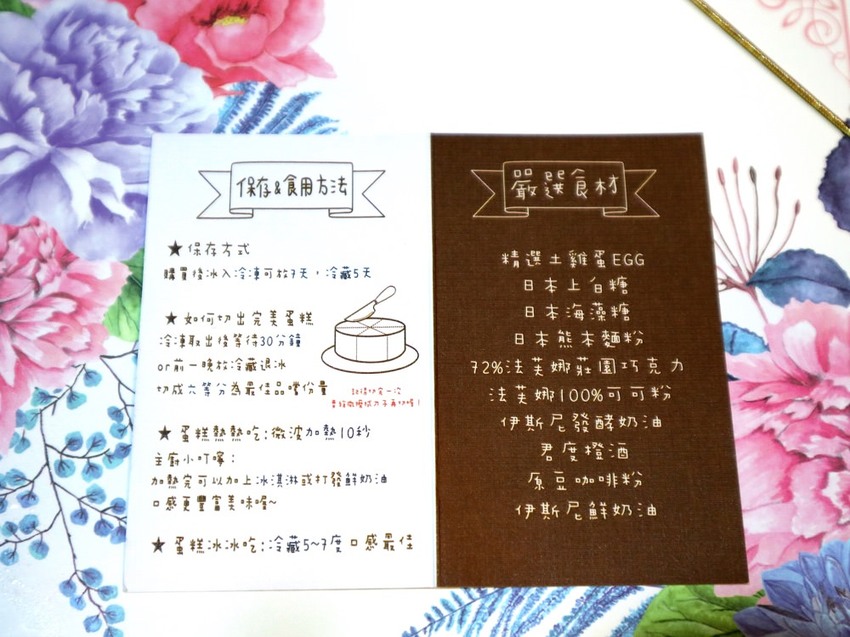 保存&食用方法
★保存方式
購買後冰入冷凍可放7天，冷藏5天
★如何切出完美蛋糕
冷凍取出後等待30分鐘
or前一晚放冷藏退冰
切成六等分為最佳品嚐份量
記得切完一次
★蛋糕熱熱吃:微波加熱10秒
主廚小叮嚀:
加熱完可以加上冰淇淋或打發鮮奶油
口感更豐富美味喔~
★蛋糕冰冰吃:冷藏5~7度口感最佳
嚴選食材
精選土雞蛋EGG
日本上白糖
日本海藻糖
日本熊本麵粉
72%法芙娜莊園巧克力
法芙娜100%可可粉
伊斯尼發酵奶油
君度橙酒
原豆咖啡粉
伊斯尼鮮奶油